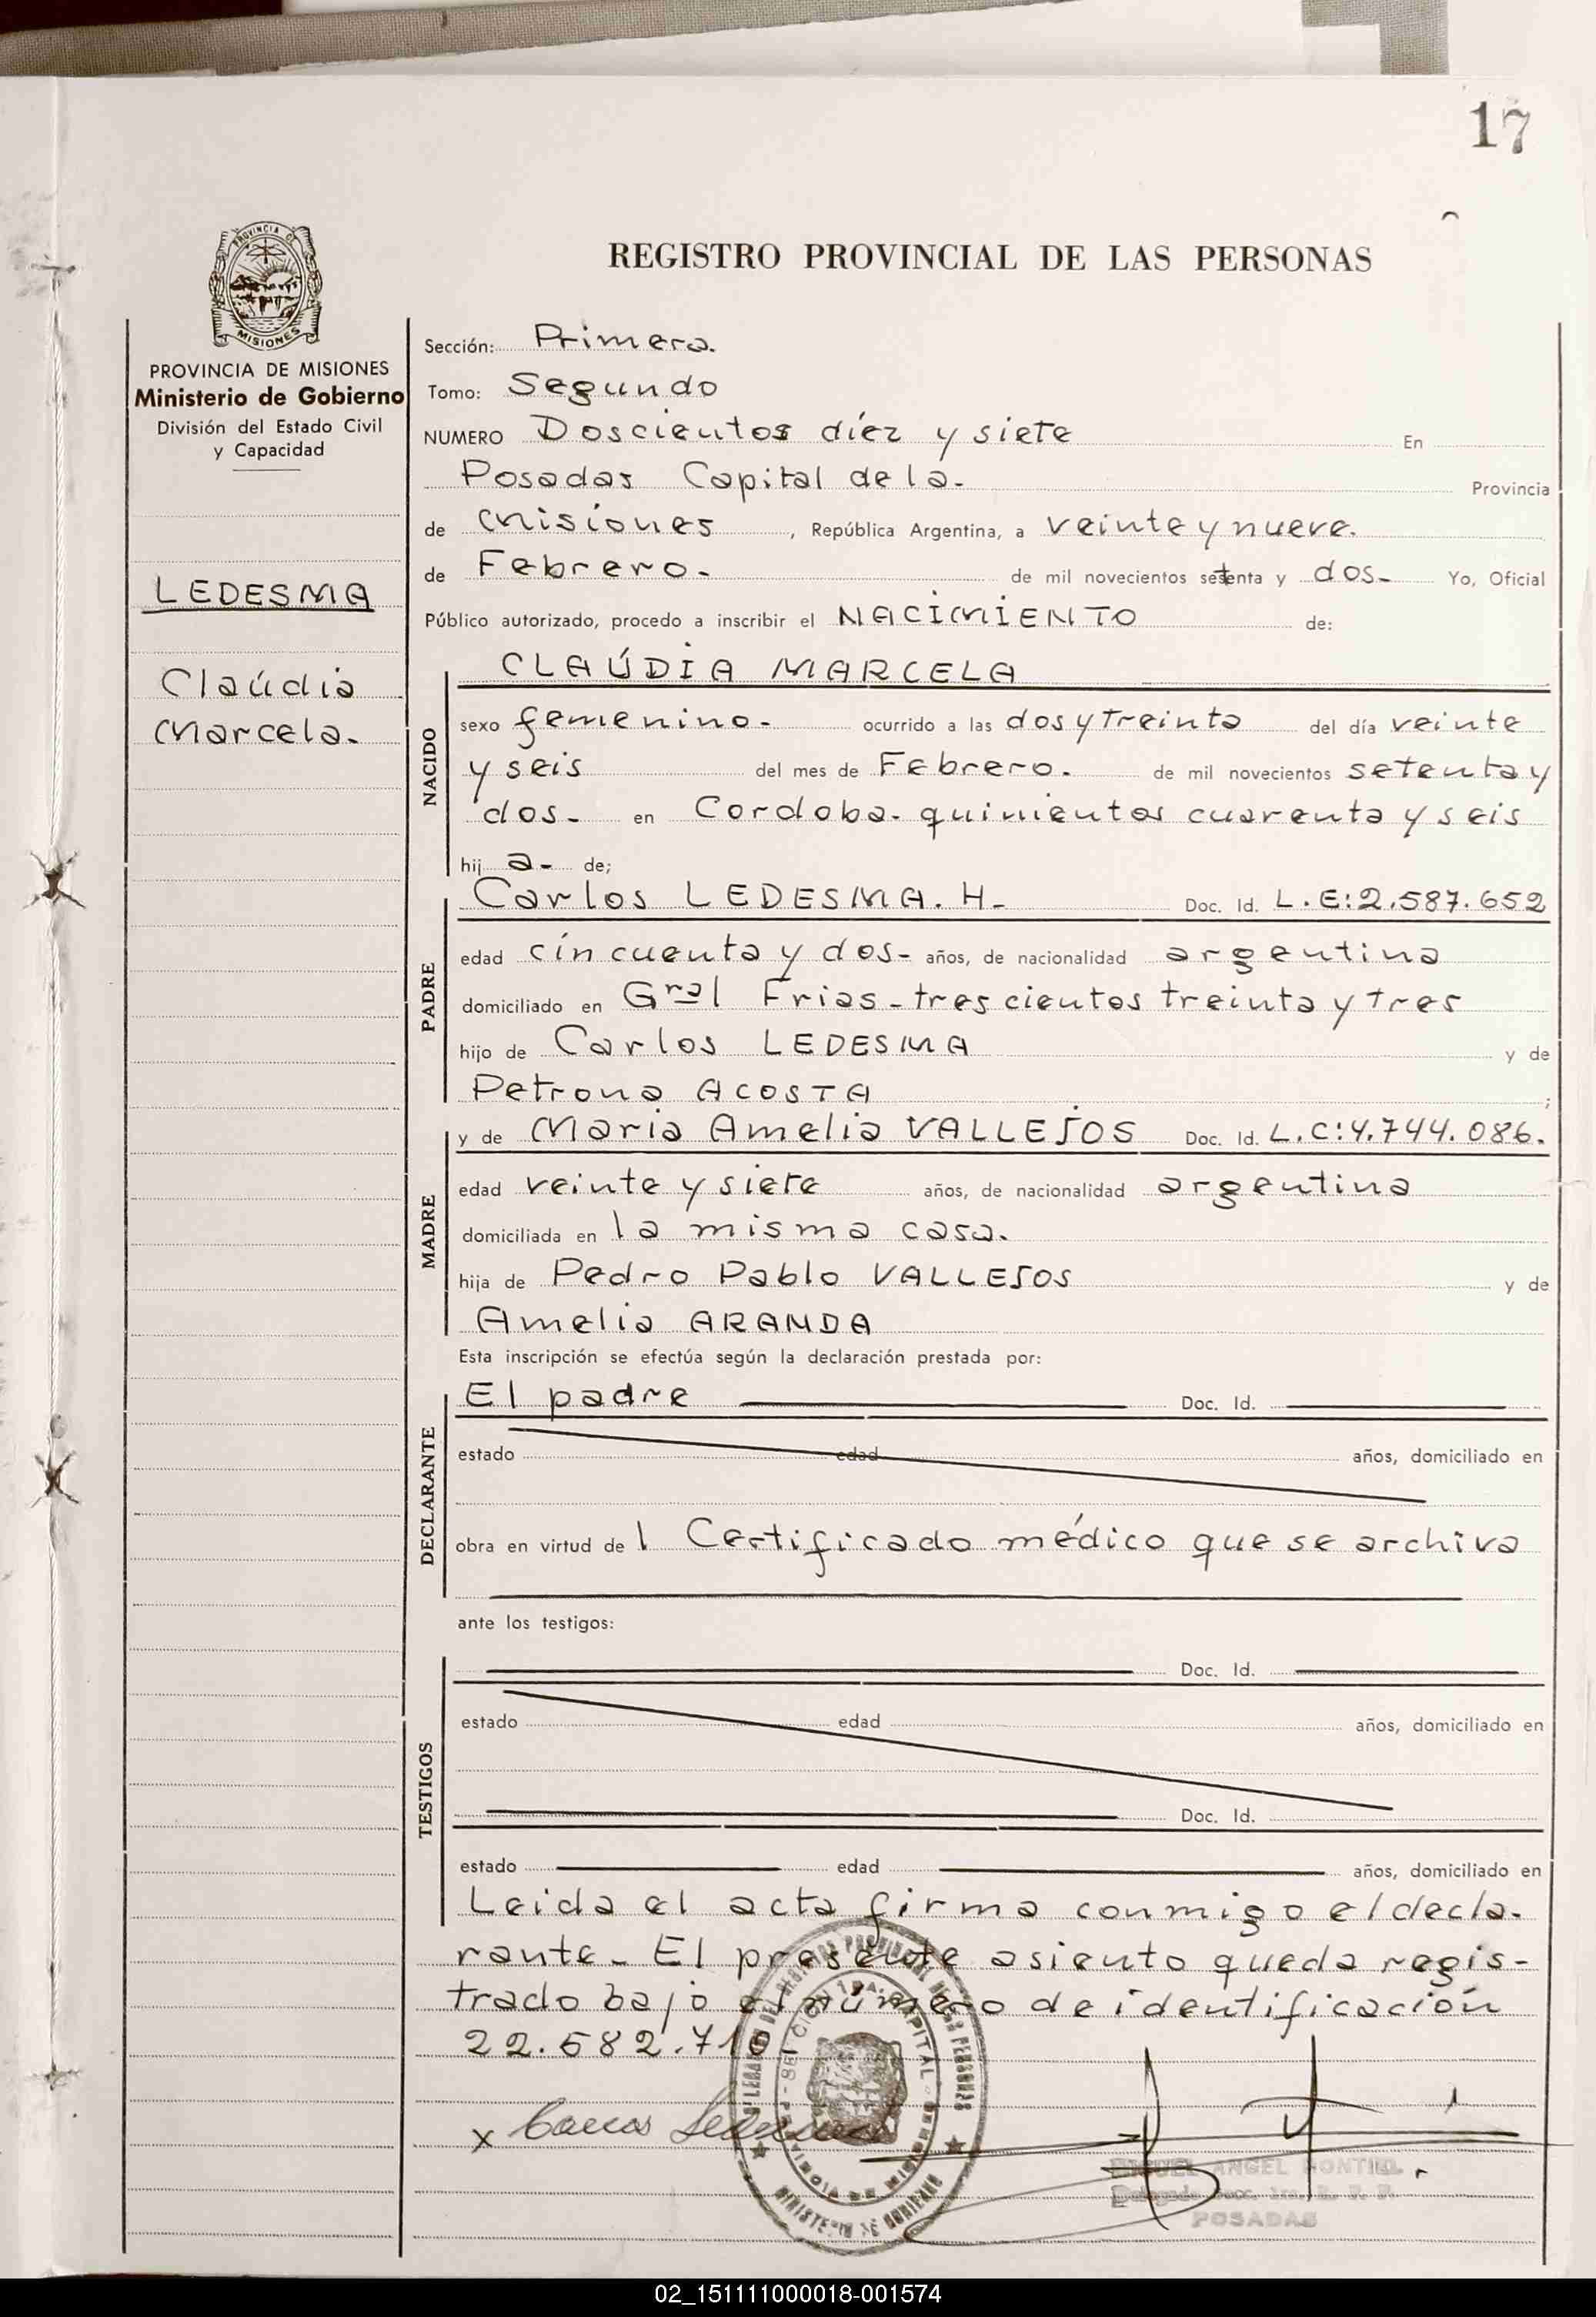 17
REGISTRO PROVINCIAL DE LAS PERSONAS
PROVINCIA DE
MISIONES
PROVINCIA DE MISIONES
Ministerio de Gobierno
División del Estado Civil
y Capacidad
LEDESMA
Claúdia
Marcela.
Sección: Primera.
Tomo: Segundo
NUMERO Doscientos díez y siete En
Posadas Capital de la. Provincia
de Misiones, República Argentina, a veinte y nueve.
de Febrero. de mil novecientos setenta y dos- Yo, Oficial
Público autorizado, procedo a inscribir el NACIMIENTO de:
NACIDO
CLAÚDIA MARCELA
sexo femenino- ocurrido a las dos y treinta del día veinte
y seis del mes de Febrero. de mil novecientos setenta y
dos- en Cordoba. quinientos cuarenta y seis
hij a- de;
PADRE
Carlos LEDESMA. H- Doc. Id. L.E:2.587.652
edad cincuenta y dos- años, de nacionalidad argentina
domiciliado en Gral Frias- trescientos treinta y tres
hijo de Carlos LEDESMA y de
Petrona ACOSTA ;
MADRE
y de Maria Amelia VALLEJOS Doc. Id. L.C:4.744.086.
edad veinte y siete años, de nacionalidad argentina
domiciliada en la misma casa.
hija de Pedro Pablo VALLEJOS y de
Amelia ARANDA
Esta inscripción se efectúa según la declaración prestada por:
DECLARANTE
El padre Doc. Id.
estado edad años, domiciliado en
obra en virtud de l Certificado médico que se archiva
ante los testigos:
TESTIGOS
Doc. Id.
estado edad años, domiciliado en
Doc. Id.
estado edad años, domiciliado en
Leida el acta firma conmigo el decla-
rante- El presente asiento queda regis-
trado bajo el número de identificación
22.582.710
x Carlos Ledesma
ANGEL
POSADAS
02_151111000018-001574